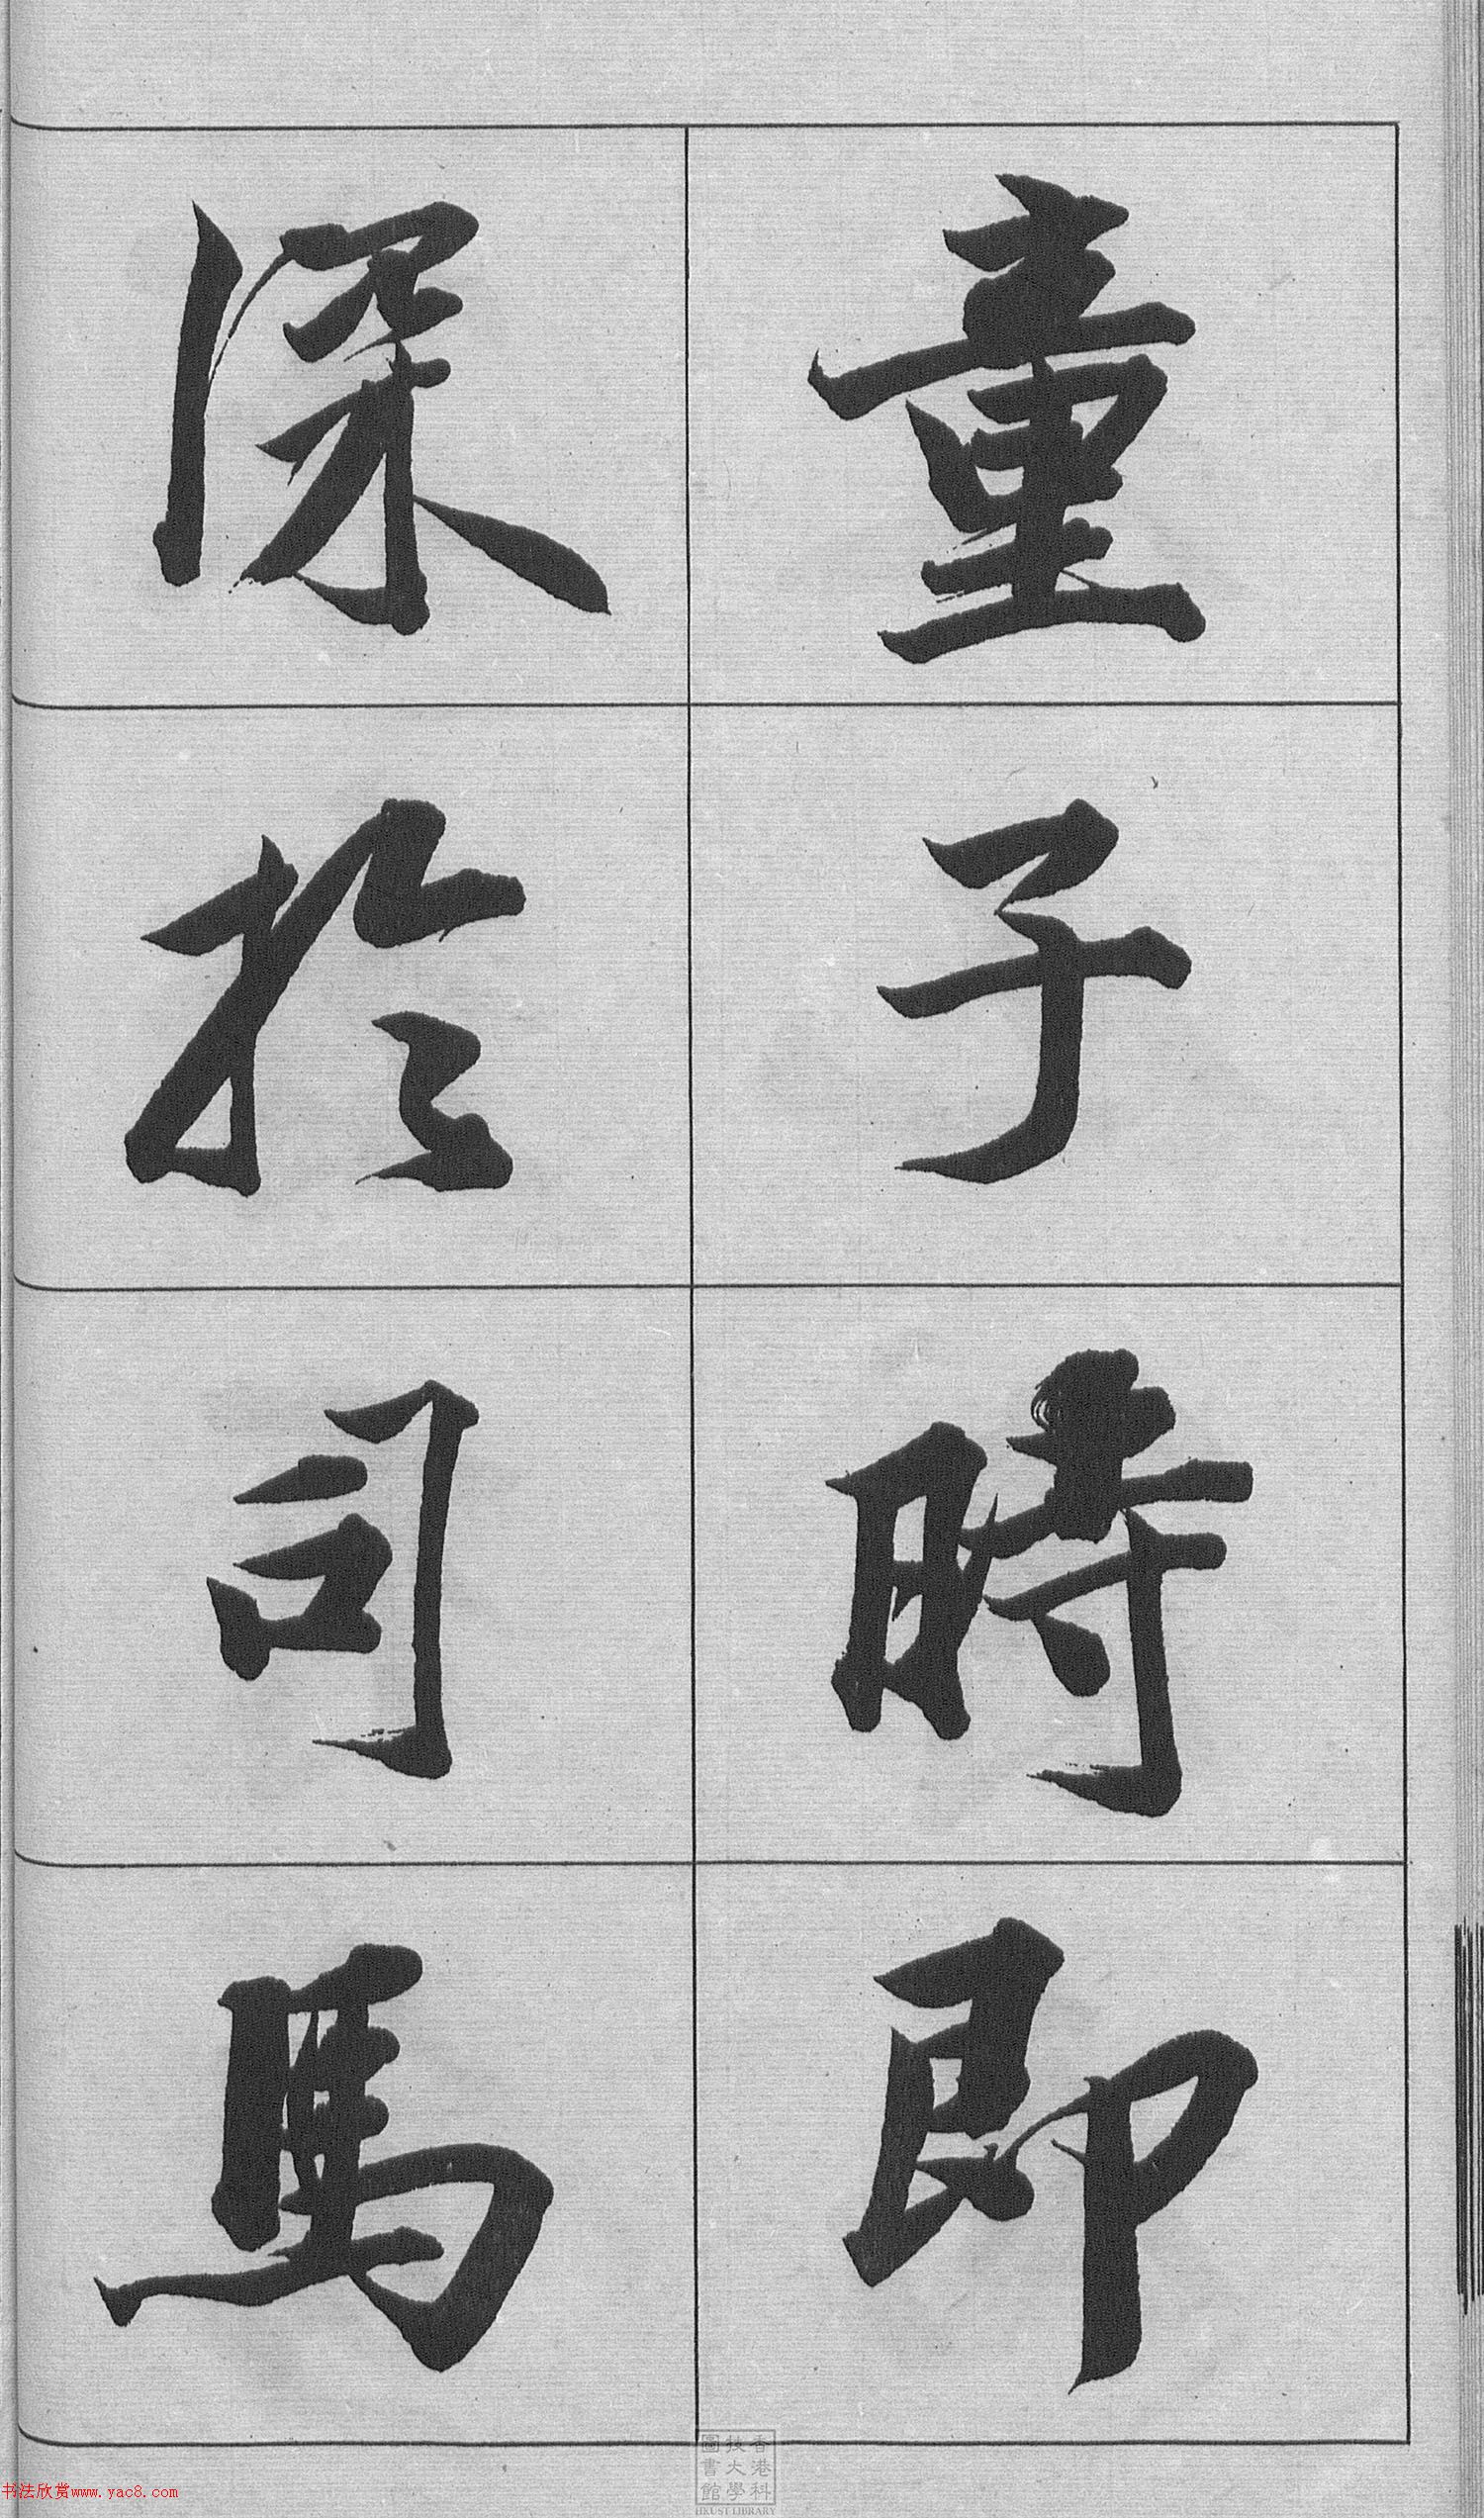 童子時即
深於司馬
香港科
技大學
圖書館
HKUST LIBRARY
书法欣赏www.yac8.com